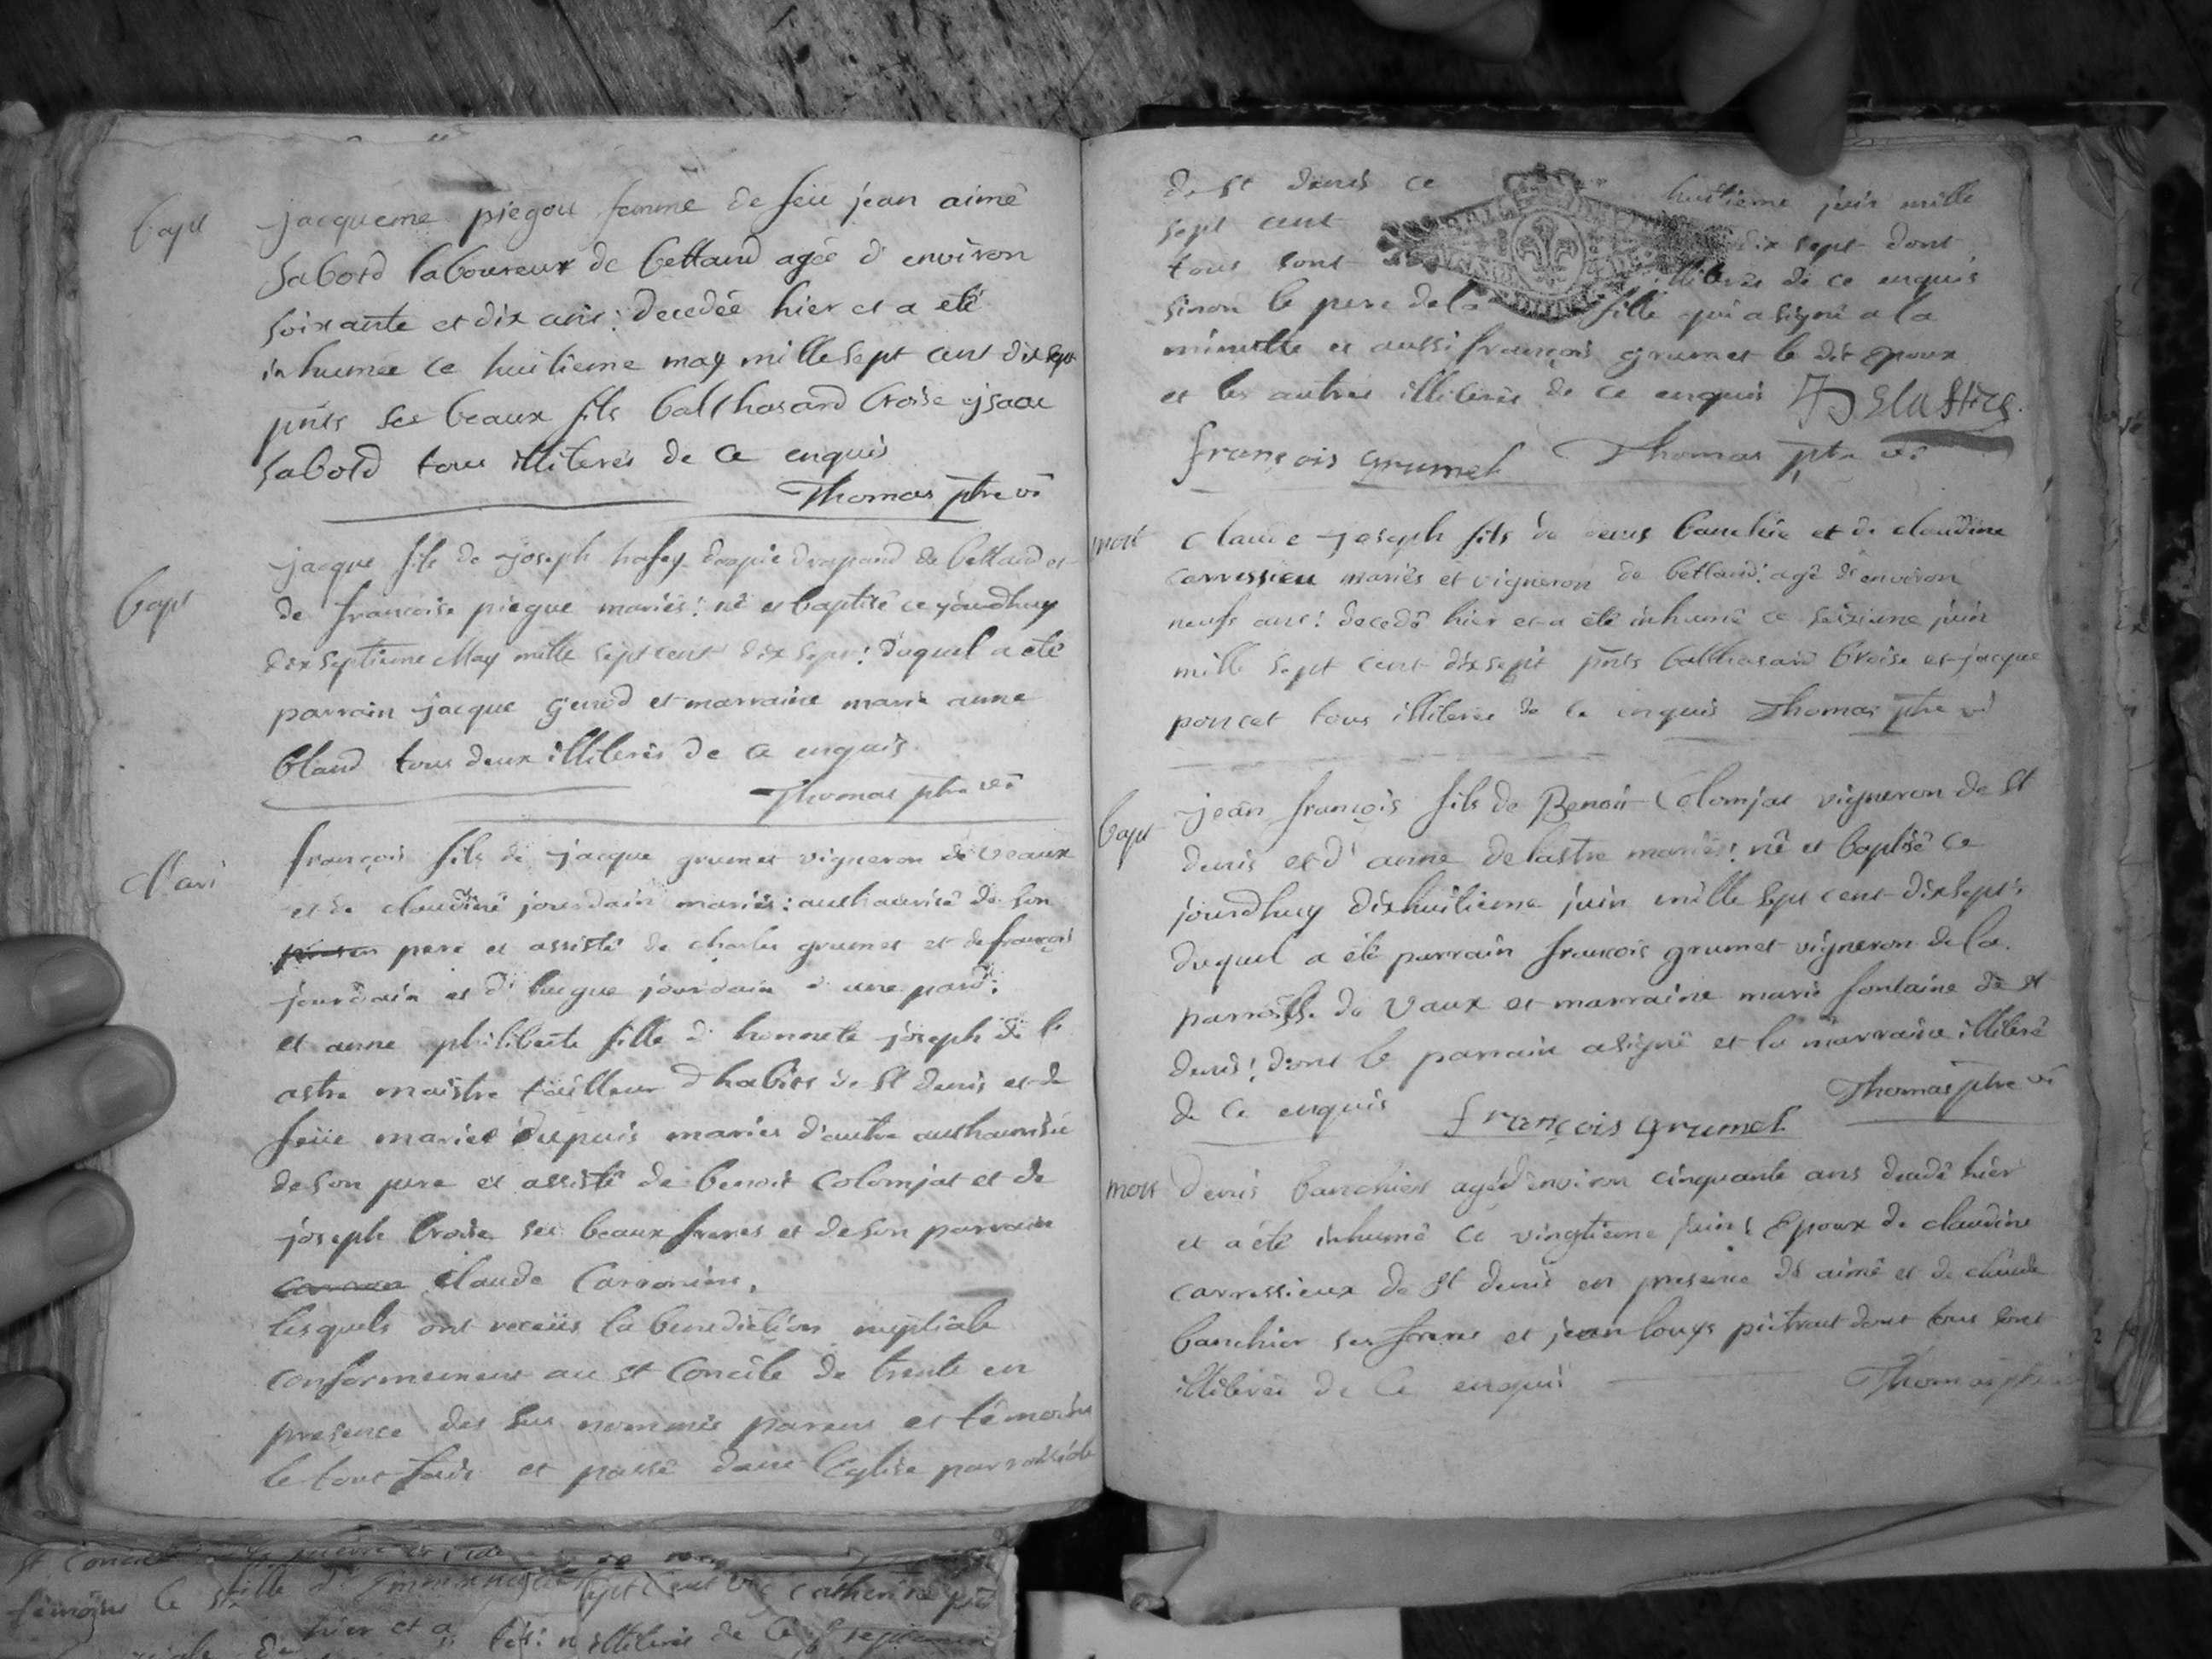 bapt
jacqueme piegou femme de feu jean aimé
sabord laboureur de bettand agée d environ
soixante et dix ans: decedée hier et a eté
inhumée ce huitieme may mille sept cent dix sept
pnts ses beaux fils balthasard broise ysaac
sabord tous illiterés de ce enquis
Thomas ptre vi
bapt
jacque fils de joseph de bettand et
de francoise piegue mariés: né et baptisé ce jourdhuy
dix septieme May mille sept cent dix sept: duquel a eté
parrain jacque genod et marraine marie anne
bland tous deux illiterés de ce enquis
Thomas ptre vi
Mari
françois fils de jacque grumet vigneron de veaux
et de claudine jourdain mariés: authaurisé de son
pere et assisté de charles grumet et de françois
jourdain et d' hugue jourdain d une part:
et anne philiberte fille d' honnete joseph de l
astre maistre tailleur d habits de St denis et de
feüe mariée dupuis mariés d'autre authaurisée
de son pere et assistée de benoit Colomjat et de
joseph broise ses beaux freres et de son parrain
claude Carronier,
lesquels ont receüs la benediction nuptiale
conformement au st Concile de trente en
presence des sus nommés parens et témoins
le tout fait et passé dans l'Eglise parroissiale
de St denis ce huitieme juin mille
sept cent dix sept dont
tous sont illiterés de ce enquis
sinon le pere de la fille qui a signé a la
minutte et aussi françois grumet le dit Epoux
et les autres illiterés de ce enquis J Delastre
françois grumet Thomas ptre vi
mort
Claude joseph fils de denis banchie et de claudine
carressieu mariés et vigneron de bettand: agé d'environ
neufs ans: decedé hier et a été inhumé ce seizieme juin
mille sept cent dix sept pnts balthasard broise et jacque
poncet tous illiterés de ce enquis Thomas ptre vi
bapt
jean françois fils de Benoit Colomjat vigneron de St
denis et d' anne delastre mariés: né et baptisé ce
jourdhuy dixhuitieme juin mille sept cent dix sept:
duquel a été parrain francois grumet vigneron de la
parroisse de Vaux et marraine marie fontaine de st
denis: dont le parrain a signé et la marraine illiteré
de ce enquis françois grumet Thomas ptre vi
mort
Denis banchier agé d'environ cinquante ans decedé hier
et a été inhumé ce vingtieme juin: Epoux de claudine
carressieux de St denis en presence d' aimé et de claude
banchier ses freres et jean louys dont tous sont
illiterés de ce enquis Thomas ptre